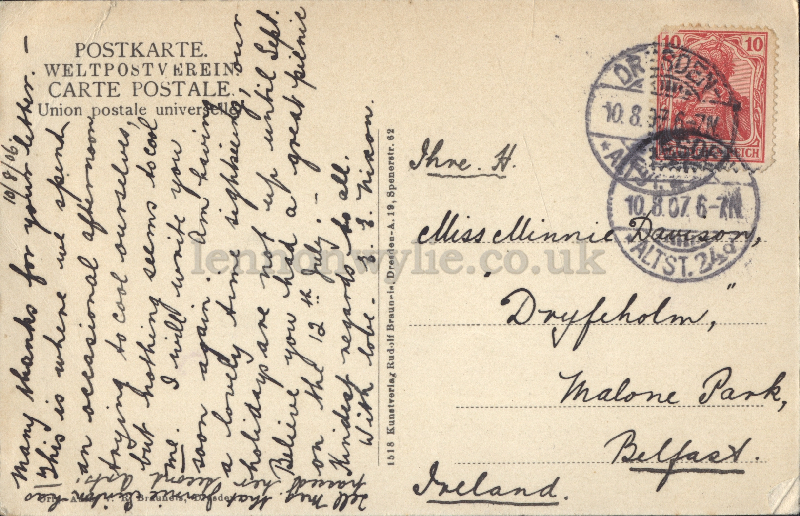 POSTKARTE.
WELTPOSTVEREIN.
CARTE POSTALE.
Union postale universelle
10/8/06.
Many thanks for your letter. —
This is where we spend
an occasional afternoon
trying to cool ourselves,
but nothing seems to cool
me. I will write you
soon again. Am having
a lovely time sightseeing, our
holidays are not up until Sept.
Believe you had a great picnic
on the 12th July. —
Kindest regards to all.
With love.
Nixon.
Tell Meg that Jennie Linton has
passed her second Arts.
1518 Kunstverlag Rudolf Braun-is, Dresden-A. 19, Spenerstr. 62
10 10
REICH
DRESDEN
10.8.07. 6-7N
*ALTST.
DRESDEN
10.8.07. 6-7N
*ALTST. 24
Ihre H.
Miss Minnie Davison,
"Dryfeholm,"
Malone Park,
Belfast.
Ireland.
lennonwylie.co.uk